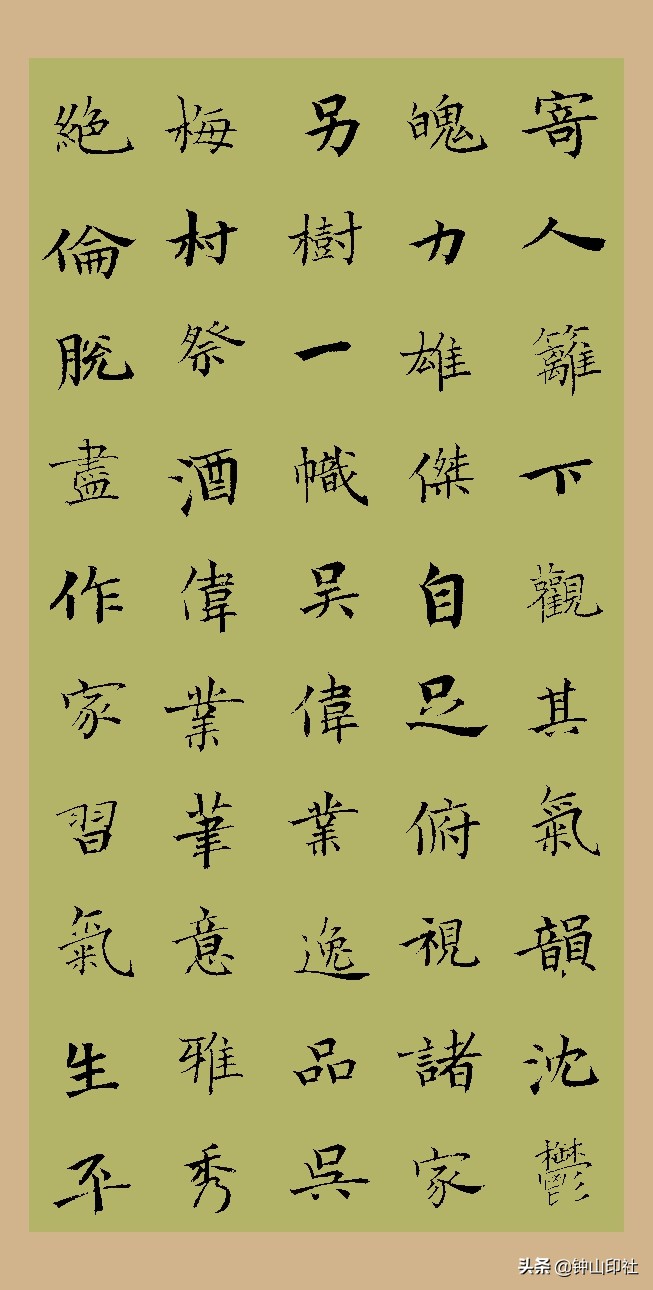 寄人籬下觀其氣韻沈鬱
魄力雄傑自足俯視諸家
另樹一幟吴偉業逸品吳
梅村祭酒偉業筆意雅秀
絕倫脫盡作家習氣生平
头条 @钟山印社